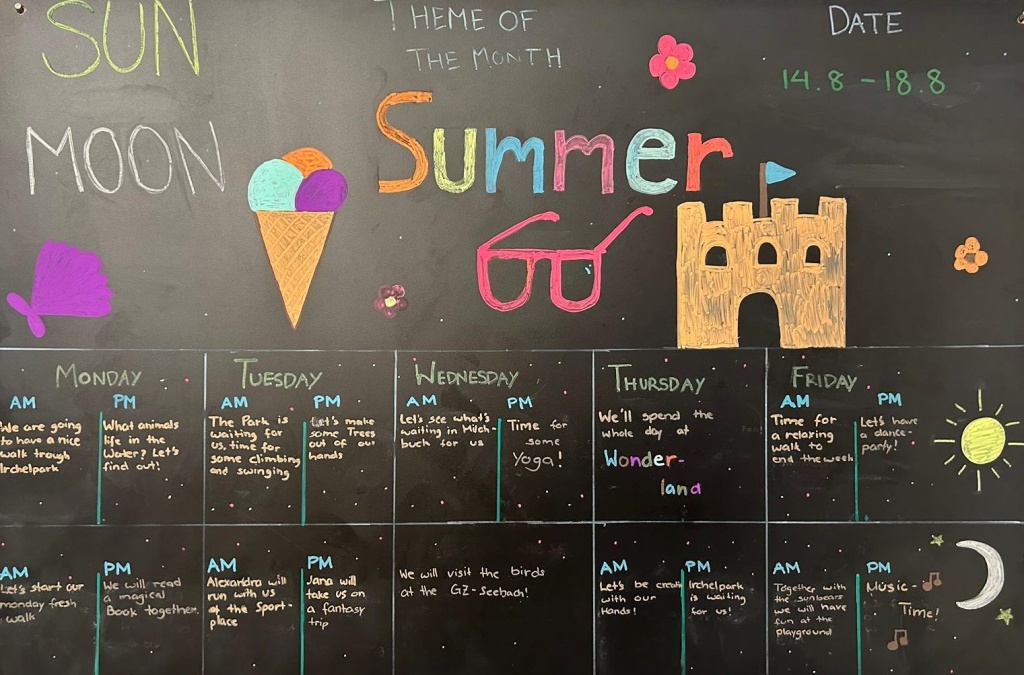 SUN
MOON
THEME OF
THE MONTH
Summer
DATE
14.8 - 18.8
MONDAY
AM
We are going
to have a nice
walk trough
Irchelpark
PM
What animals
life in the
Water? Let's
find out!
TUESDAY
AM
The Park is
waiting for
us time for
some climbing
and swinging
PM
Let's make
some Trees
out of our
hands
WEDNESDAY
AM
Let's see what's
waiting in Milch-
buck for us
PM
Time for
some
Yoga!
THURSDAY
We'll spend the
whole day at
Wonder-
land
FRIDAY
AM
Time for
a relaxing
walk to
end the week
PM
Let's have
a dance-
party!
AM
Let's start our
monday fresh
walk
PM
We will read
a magical
Book together.
AM
Alexandra will
run with us
at the Sport-
place
PM
Jana will
take us on
a fantasy
trip
We will visit the birds
at the GZ-Seebach!
AM
Let's be creativ
with our
Hands!
PM
Irchelpark
is waiting
for us!
AM
Together with
the sunbears
we will have
fun at the
playground
PM
Music-
Time!